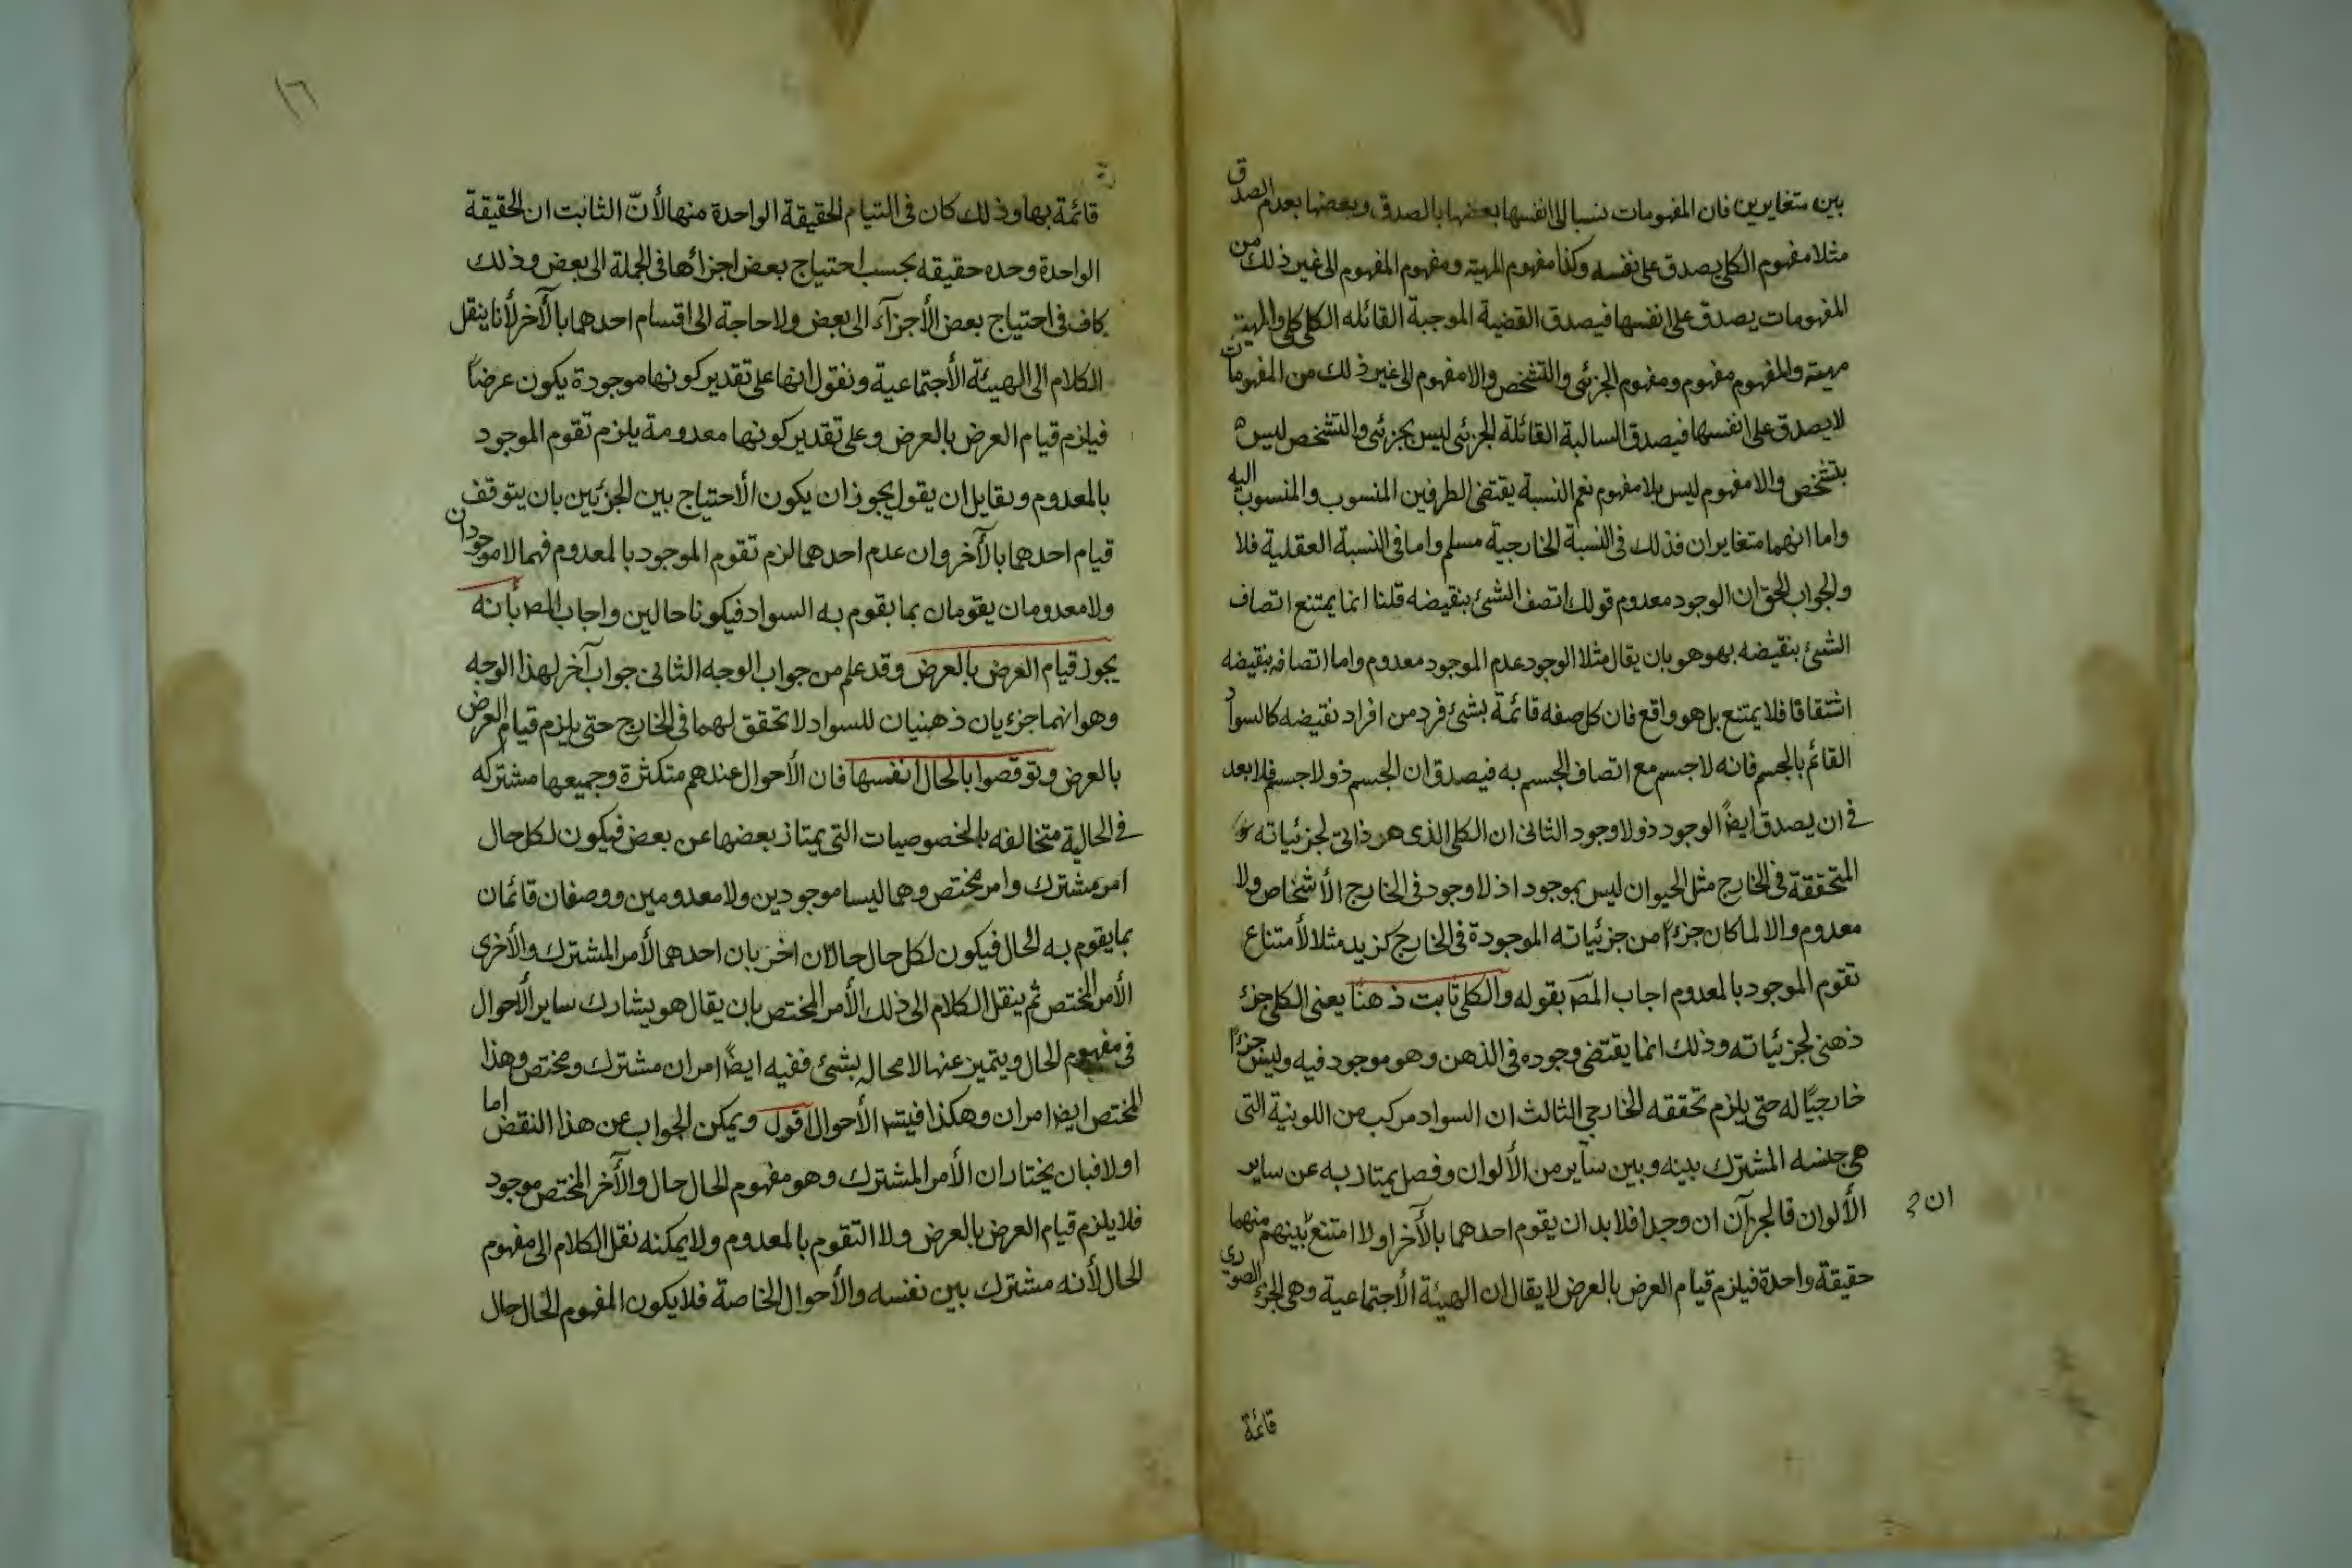 بين متغايرين فان المفهومات ننسبا الى انفسها بعضها بالصدق وبعضها بعدم الصدق
مثلا مفهوم الكلي يصدق على نفسه وكذا مفهوم المهية ومفهوم المفهوم الى غير ذلك من
المفهومات يصدق على انفسها فيصدق القضية الموجبة القائله الكلي كلي والمهية
مهية والمفهوم مفهوم ومفهوم الجزئي والتشخص والامفهوم الى غير ذلك من المفهومات
لا يصدق على انفسها فيصدق السالبة القائلة الجزئي ليس بجزئي والتشخص ليس
بتشخص والامفهوم ليس بلا مفهوم نعم النسبة يقتضى الطرفين المنسوب والمنسوب اليه
واما انهما متغايران فذلك في النسبة الخارجية مسلم واما في النسبة العقلية فلا
والجواب الحق ان الوجود معدوم قولك اتصف الشئ بنقيضه قلنا انما يمتنع اتصاف
الشئ بنقيضه بهو هو بان يقال مثلا الوجود عدم الموجود معدوم واما اتصافه بنقيضه
اشتقاقا فلا يمتنع بل هو واقع فان كل صفه قائمة بشئ فرد من افراد نقيضه كالسواد
القائم بالجسم فانه لا جسم مع اتصاف الجسم به فيصدق ان الجسم ذو لا جسم فلا بعد
في ان يصدق ايضًا الوجود ذو لا وجود الثانى ان الكلى الذى هو ذاتى لجزئياته
المتحققة في الخارج مثل الحيوان ليس بموجود اذ لا وجود في الخارج الأشخاص ولا
معدوم والا لما كان جزءًا من جزئياته الموجودة في الخارج كزيد مثلا لأمتناع
تقوم الموجود بالمعدوم اجاب المص بقوله والكلى ثابت ذهنًا يعنى الكلى جزئ
ذهنى لجزئياته وذلك انما يقتضى وجوده في الذهن وهو موجود فيه وليس جزءًا
خارجيًا له حتى يلزم تحققه الخارجي الثالث ان السواد مركب من اللونية التى
هى جنسه المشترك بينه وبين ساير من الألوان وفصل يمتاز به عن ساير
الألوان فالجزآن ان وجدا فلا بد ان يقوم احدهما بالأخر اولا امتنع بينهم منهما
ان
حقيقة واحدة فيلزم قيام العرض بالعرض لا يقال ان الهيئة الأجتماعية وهى الجزئ الصورى
قائمة
١٦
قائمة بها وذلك كان في التيام الحقيقة الواحدة منها لأنّ الثابت ان الحقيقة
الواحدة وحده حقيقه بحسب احتياج بعض اجزائها في الجملة الى بعض وذلك
كاف في احتياج بعض الأجزآء الى بعض ولا حاجة الى اقسام احدهما بالأخر لأنا ينقل
الكلام الى الهيئة الأجتماعية ونقول انها على تقدير كونها موجودة يكون عرضًا
فيلزم قيام العرض بالعرض وعلى تقدير كونها معدومة يلزم تقوم الموجود
بالمعدوم ولقايل ان يقول يجوز ان يكون الأحتياج بين الجزئين بان يتوقف
قيام احدهما بالأخر وان عدم احدهما لزم تقوم الموجود بالمعدوم فهما لا موجودان
ولا معدومان يقومان بما يقوم به السواد فيكونا حالين واجاب المص بأنه
يجوز قيام العرض بالعرض وقد علم من جواب الوجه الثانى جواب آخر لهذا الوجه
وهو انهما جزءيان ذهنيان للسواد لا تحقق لهما في الخارج حتى يلزم قيام العرض
بالعرض ونوقضوا بالحال انفسها فان الأحوال عندهم متكثرة وجميعها مشتركه
في الحالية متخالفه بالخصوصيات التى يمتاز بعضها عن بعض فيكون لكل حال
امر مشترك وامر مختص وهما ليسا موجودين ولا معدومين ووصفان قائمان
بما يقوم به الحال فيكون لكل حال حالان اخريان احدهما الأمر المشترك والأخرى
الأمر المختص ثم ينقل الكلام الى ذلك الأمر المختص بان يقال هو يشارك ساير الأحوال
في مفهوم الحال ويتميز عنها لا محاله بشئ ففيه ايضًا امران مشترك ومختص وهذا
المختص ايضا امران وهكذا فيتس الأحوال اقول ويمكن الجواب عن هذا النقض اما
اولا فبان يختار ان الأمر المشترك وهو مفهوم الحال حال والأخر المختص موجود
فلا يلزم قيام العرض بالعرض ولا التقوم بالمعدوم ولا يمكنه نقل الكلام الى مفهوم
الحال لأنه مشترك بين نفسه والأحوال الخاصة فلا يكون المفهوم الحال حال